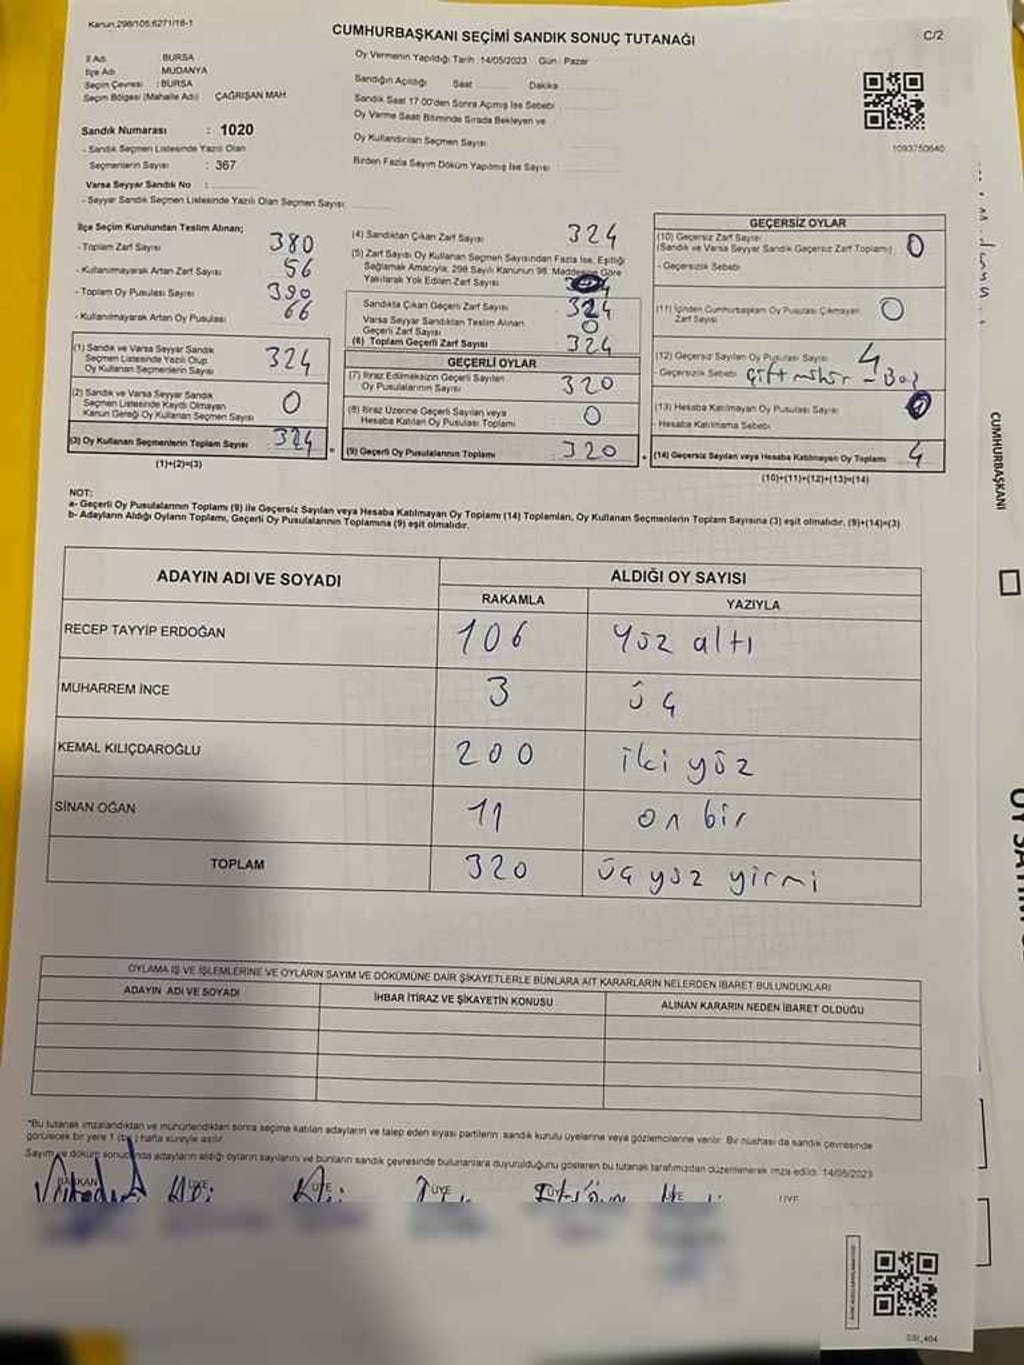 Kanun.298/105.6271/18-1
CUMHURBAŞKANI SEÇİMİ SANDIK SONUÇ TUTANAĞI
C/2
İl Adı : BURSA
İlçe Adı : MUDANYA
Seçim Çevresi : BURSA
Seçim Bölgesi (Mahalle Adı) ÇAĞRIŞAN MAH.
Oy Vermenin Yapıldığı Tarih :14/05/2023 Gün : Pazar
Sandığın Açıldığı Saat Dakika
Sandık Saat 17:00'den Sonra Açılmış İse Sebebi
Oy Verme Saat Bitiminde Sırada Bekleyen ve
Oy Kullandırılan Seçmen Sayısı
Birden Fazla Sayım Döküm Yapılmış İse Sayısı
1093750640
Sandık Numarası : 1020
- Sandık Seçmen Listesinde Yazılı Olan
Seçmenlerin Sayısı : 367
Varsa Seyyar Sandık No :
- Seyyar Sandık Seçmen Listesinde Yazılı Olan Seçmen Sayısı:
İlçe Seçim Kurulundan Teslim Alınan;
- Toplam Zarf Sayısı 380
- Kullanılmayarak Artan Zarf Sayısı 56
- Toplam Oy Pusulası Sayısı 390
- Kullanılmayarak Artan Oy Pusulası 66
(1) Sandık ve Varsa Seyyar Sandık
Seçmen Listesinde Yazılı Olup
Oy Kullanan Seçmenlerin Sayısı 324
(2) Sandık ve Varsa Seyyar Sandık
Seçmen Listesinde Kayıtlı Olmayan
Kanun Gereği Oy Kullanan Seçmen Sayısı 0
(3) Oy Kullanan Seçmenlerin Toplam Sayısı 324
(1)+(2)=(3)
(4) Sandıktan Çıkan Zarf Sayısı 324
(5) Zarf Sayısı Oy Kullanan Seçmen Sayısından Fazla İse, Eşitliği
Sağlamak Amacıyla, 298 Sayılı Kanunun 98. Maddesine Göre
Yakılarak Yok Edilen Zarf Sayısı
Sandıkta Çıkan Geçerli Zarf Sayısı 324
Varsa Seyyar Sandıktan Teslim Alınan
Geçerli Zarf Sayısı 0
(6) Toplam Geçerli Zarf Sayısı 324
GEÇERLİ OYLAR
(7) İtiraz Edilmeksizin Geçerli Sayılan
Oy Pusulalarının Sayısı 320
(8) İtiraz Üzerine Geçerli Sayılan veya
Hesaba Katılan Oy Pusulası Toplamı 0
(9) Geçerli Oy Pusulalarının Toplamı 320
GEÇERSİZ OYLAR
(10) Geçersiz Zarf Sayısı
(Sandık ve Varsa Seyyar Sandık Geçersiz Zarf Toplamı) 0
- Geçersizlik Sebebi
(11) İçinden Cumhurbaşkanı Oy Pusulası Çıkmayan
Zarf Sayısı 0
(12) Geçersiz Sayılan Oy Pusulası Sayısı 4
- Geçersizlik Sebebi Çift mühür - Boş
(13) Hesaba Katılmayan Oy Pusulası Sayısı
- Hesaba Katılmama Sebebi
(14) Geçersiz Sayılan veya Hesaba Katılmayan Oy Toplamı 4
(10)+(11)+(12)+(13)=(14)
NOT:
a- Geçerli Oy Pusulalarının Toplamı (9) ile Geçersiz Sayılan veya Hesaba Katılmayan Oy Toplamı (14) Toplamları, Oy Kullanan Seçmenlerin Toplam Sayısına (3) eşit olmalıdır. (9)+(14)=(3)
b- Adayların Aldığı Oyların Toplamı, Geçerli Oy Pusulalarının Toplamına (9) eşit olmalıdır.
ADAYIN ADI VE SOYADI
ALDIĞI OY SAYISI
RAKAMLA YAZIYLA
RECEP TAYYİP ERDOĞAN 106 Yüz altı
MUHARREM İNCE 3 üç
KEMAL KILIÇDAROĞLU 200 iki yüz
SİNAN OĞAN 11 on bir
TOPLAM 320 üç yüz yirmi
OYLAMA İŞ VE İŞLEMLERİNE VE OYLARIN SAYIM VE DÖKÜMÜNE DAİR ŞİKAYETLERLE BUNLARA AİT KARARLARIN NELERDEN İBARET BULUNDUKLARI
ADAYIN ADI VE SOYADI İHBAR İTİRAZ VE ŞİKAYETİN KONUSU ALINAN KARARIN NEDEN İBARET OLDUĞU
*Bu tutanak imzalandıktan ve mühürlendikten sonra seçime katılan adayların ve talep eden siyasi partilerin sandık kurulu üyelerine veya gözlemcilerine verilir. Bir nüshası da sandık çevresinde
görülecek bir yere 1 (bir) hafta süreyle asılır.
Sayım ve döküm sonucunda adayların aldığı oyların sayılarını ve bunların sandık çevresinde bulunanlara duyurulduğunu gösteren bu tutanak tarafımızdan düzenlenerek imza edildi. 14/05/2023
BAŞKAN ÜYE ÜYE ÜYE ÜYE ÜYE ÜYE
CUMHURBAŞKANI